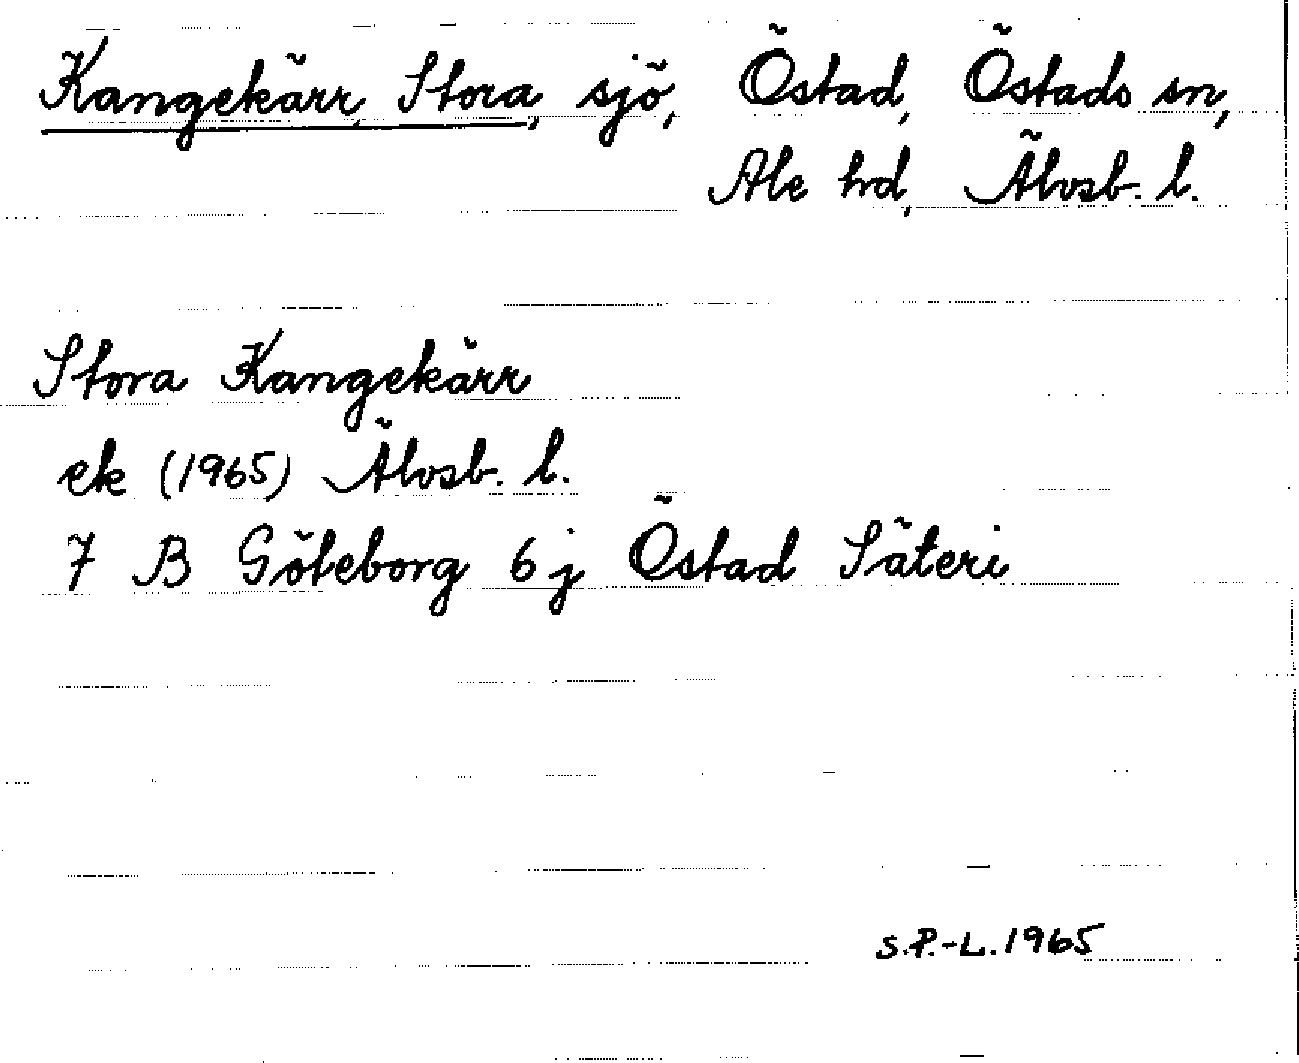 Kangekärr, Stora, sjö, Östad, Östads sn,
Ale hd, Älvsb. l.
Stora Kangekärr
ek (1965) Älvsb. l.
7 B Göteborg 6 j Östad Säteri
S.P.-L. 1965